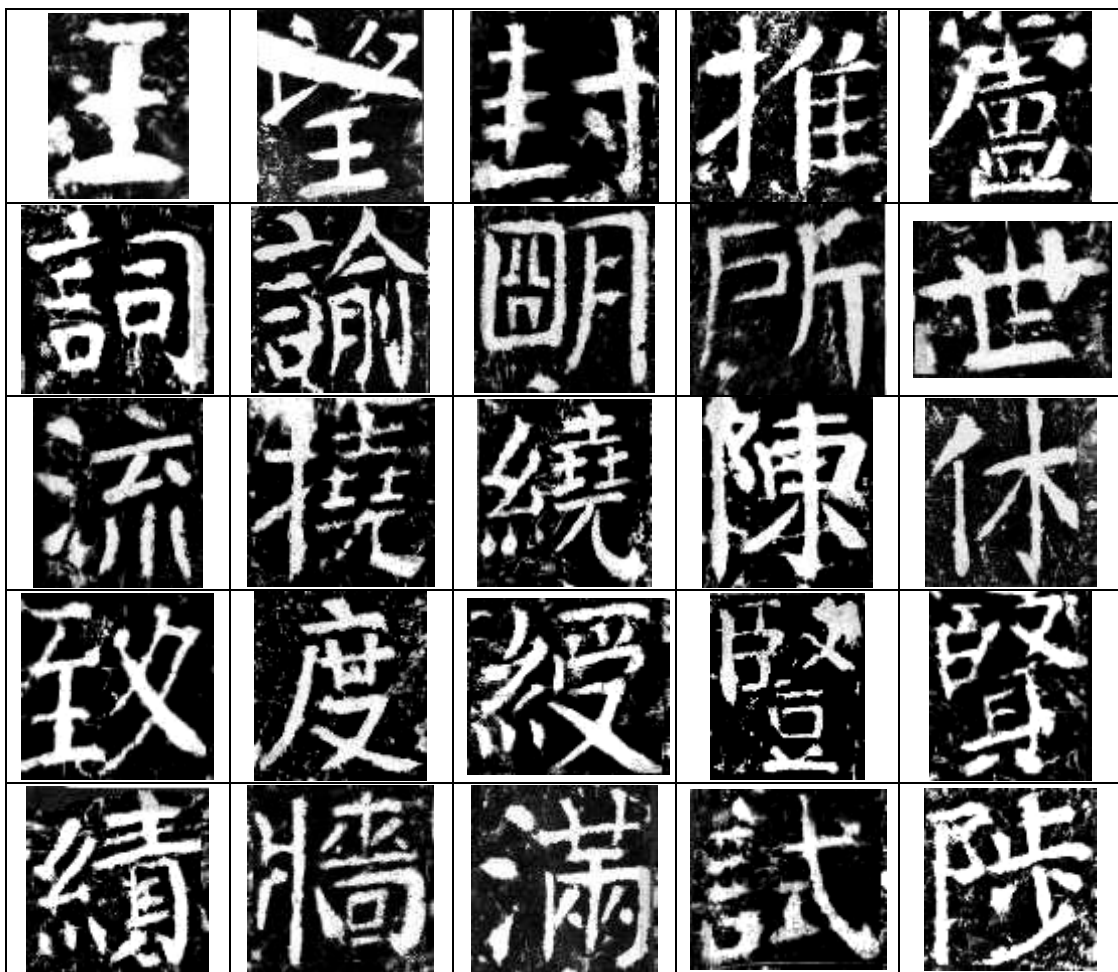 王 望 封 推
詞 諭 朙 所 世
流 撓 繞 陳 休
致 度 綬 竪 賢
績 牆 滿 試 陟